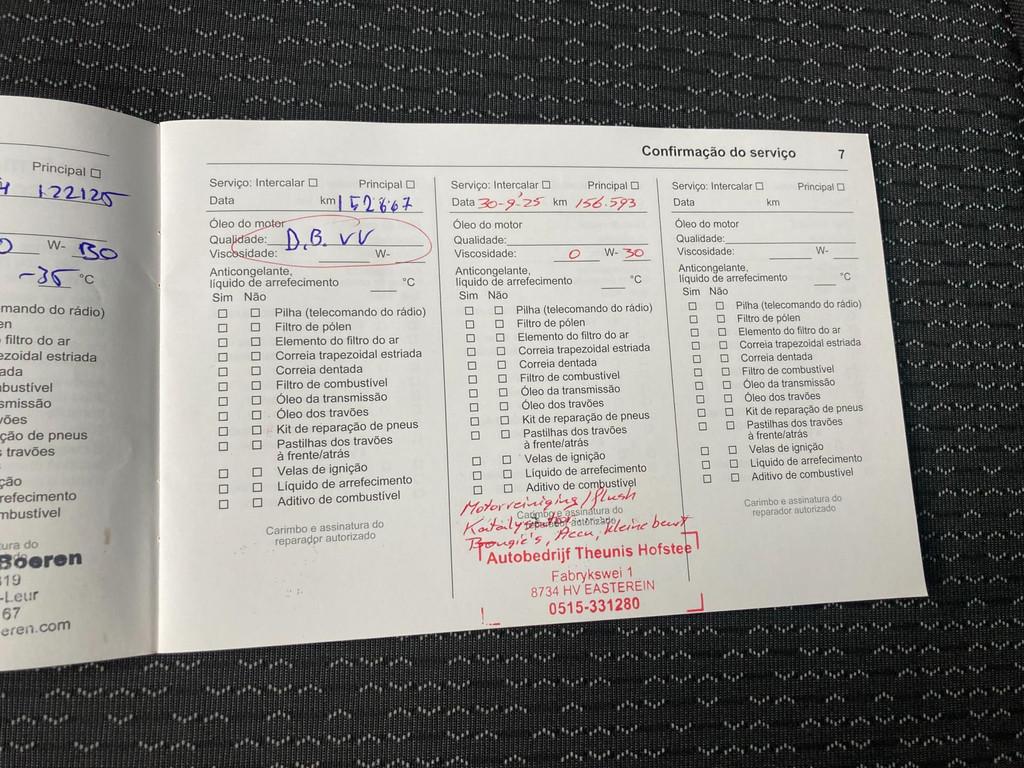 Principal ☐
122125
W- BO
-35 °C
mando do rádio)
en
filtro do ar
ezoidal estriada
ada
mbustível
smissão
vões
ção de pneus
travões
ção
refecimento
mbustível
ura do
Boeren
19
-Leur
67
eren.com
Confirmação do serviço 7
Serviço: Intercalar ☐ Principal ☐
Data km 152667
Óleo do motor
Qualidade: D.B. VV
Viscosidade: W-
Anticongelante,
líquido de arrefecimento °C
Sim Não
☐ ☐ Pilha (telecomando do rádio)
☐ ☐ Filtro de pólen
☐ ☐ Elemento do filtro do ar
☐ ☐ Correia trapezoidal estriada
☐ ☐ Correia dentada
☐ ☐ Filtro de combustível
☐ ☐ Óleo da transmissão
☐ ☐ Óleo dos travões
☐ ☐ Kit de reparação de pneus
☐ ☐ Pastilhas dos travões
à frente/atrás
☐ ☐ Velas de ignição
☐ ☐ Líquido de arrefecimento
☐ ☐ Aditivo de combustível
Carimbo e assinatura do
reparador autorizado
Serviço: Intercalar ☐ Principal ☐
Data 30-9-'25 km 156.593
Óleo do motor
Qualidade:
Viscosidade: 0 W- 30
Anticongelante,
líquido de arrefecimento °C
Sim Não
☐ ☐ Pilha (telecomando do rádio)
☐ ☐ Filtro de pólen
☐ ☐ Elemento do filtro do ar
☐ ☐ Correia trapezoidal estriada
☐ ☐ Correia dentada
☐ ☐ Filtro de combustível
☐ ☐ Óleo da transmissão
☐ ☐ Óleo dos travões
☐ ☐ Kit de reparação de pneus
☐ ☐ Pastilhas dos travões
à frente/atrás
☐ ☐ Velas de ignição
☐ ☐ Líquido de arrefecimento
☐ ☐ Aditivo de combustível
Motorreiniging/flush
Carimbo e assinatura do
reparador autorizado
Bougie's, Accu, kleine beurt
Autobedrijf Theunis Hofstee
Fabrykswei 1
8734 HV EASTEREIN
0515-331280
Serviço: Intercalar ☐ Principal ☐
Data km
Óleo do motor
Qualidade:
Viscosidade: W-
Anticongelante,
líquido de arrefecimento °C
Sim Não
☐ ☐ Pilha (telecomando do rádio)
☐ ☐ Filtro de pólen
☐ ☐ Elemento do filtro do ar
☐ ☐ Correia trapezoidal estriada
☐ ☐ Correia dentada
☐ ☐ Filtro de combustível
☐ ☐ Óleo da transmissão
☐ ☐ Óleo dos travões
☐ ☐ Kit de reparação de pneus
☐ ☐ Pastilhas dos travões
à frente/atrás
☐ ☐ Velas de ignição
☐ ☐ Líquido de arrefecimento
☐ ☐ Aditivo de combustível
Carimbo e assinatura do
reparador autorizado